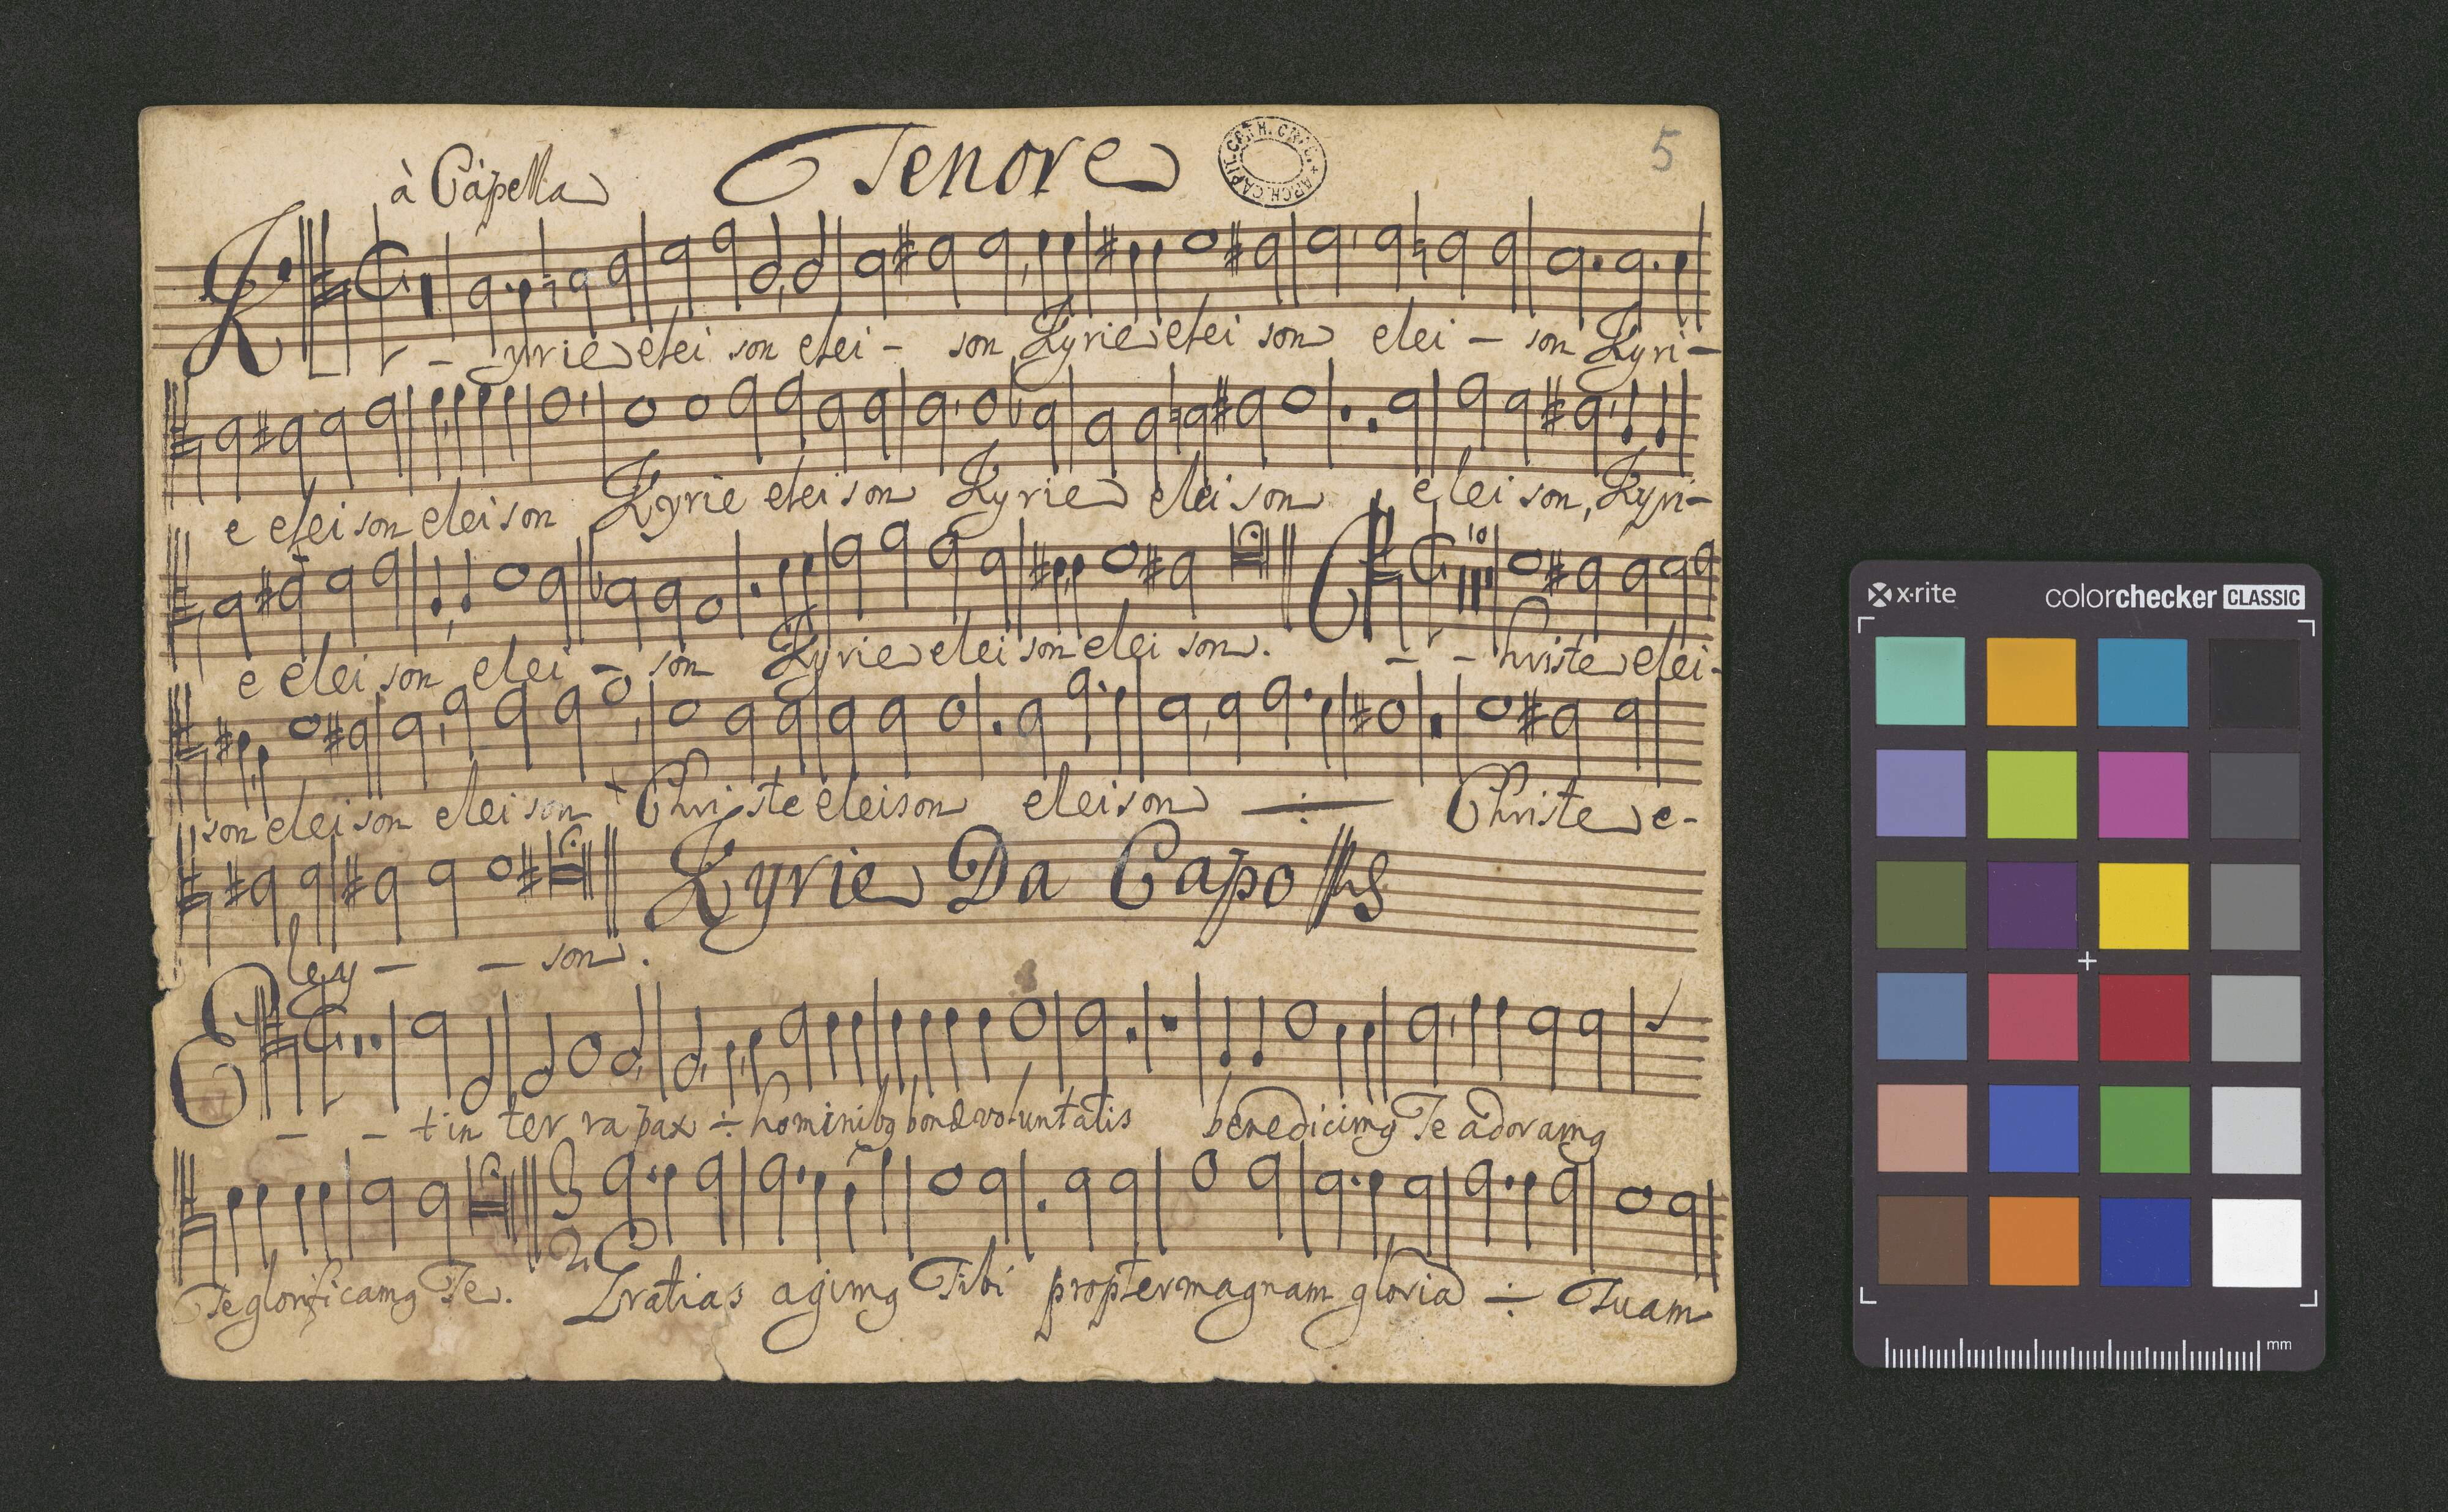 à Capella Tenore 5
CAPIT. CATH. ARCH. CAPIT.
K - yrie elei son elei - son Kyrie elei son elei - son Kyri-
e elei son elei son Kyrie elei son Kyrie elei son elei son, Kyri-
10
e elei son elei - son Kyrie elei son elei son. C - - hriste elei-
son elei son elei son Christe eleison eleison ÷ Christe e-
Kyrie Da Capo
ley - - son.
E - - t in ter ra pax ÷ hominibg bonæ voluntatis benedicimg Te adoramg
3
2
Te glorificamg Te. Gratias agimg Tibi propter magnam gloria ÷ Tuam
x·rite colorchecker CLASSIC
mm